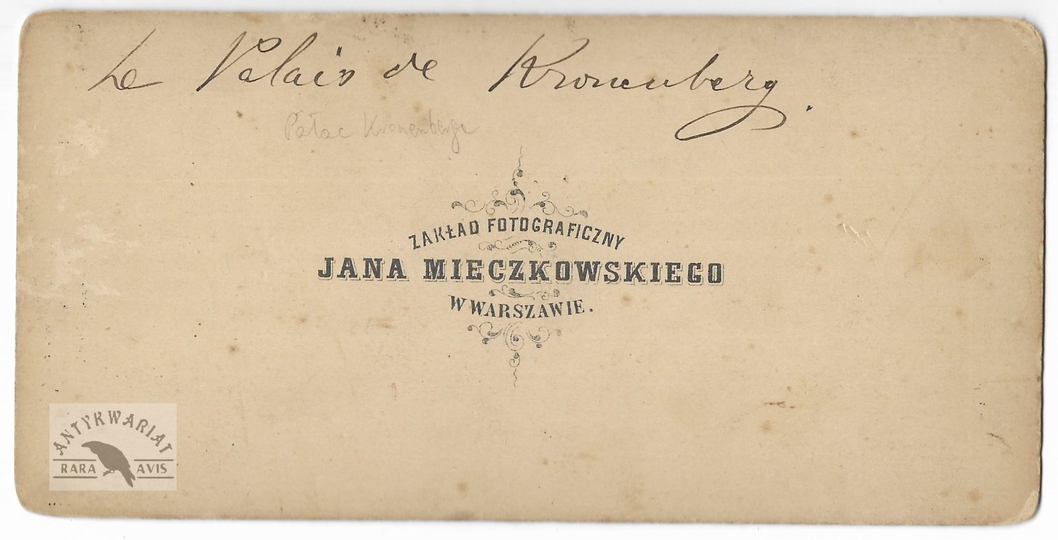 Le Palais de Kronenberg.
Pałac Kronenberga
ZAKŁAD FOTOGRAFICZNY
JANA MIECZKOWSKIEGO
W WARSZAWIE.
ANTYKWARIAT
RARA AVIS